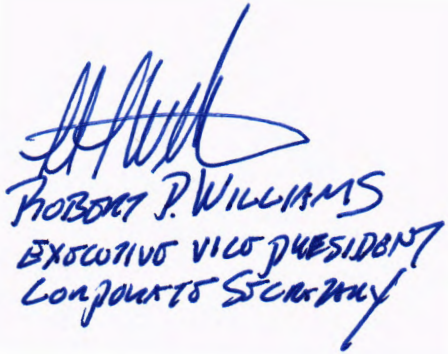 ROBERT P. WILLIAMS
EXECUTIVE VICE PRESIDENT
CORPORATE SECRETARY